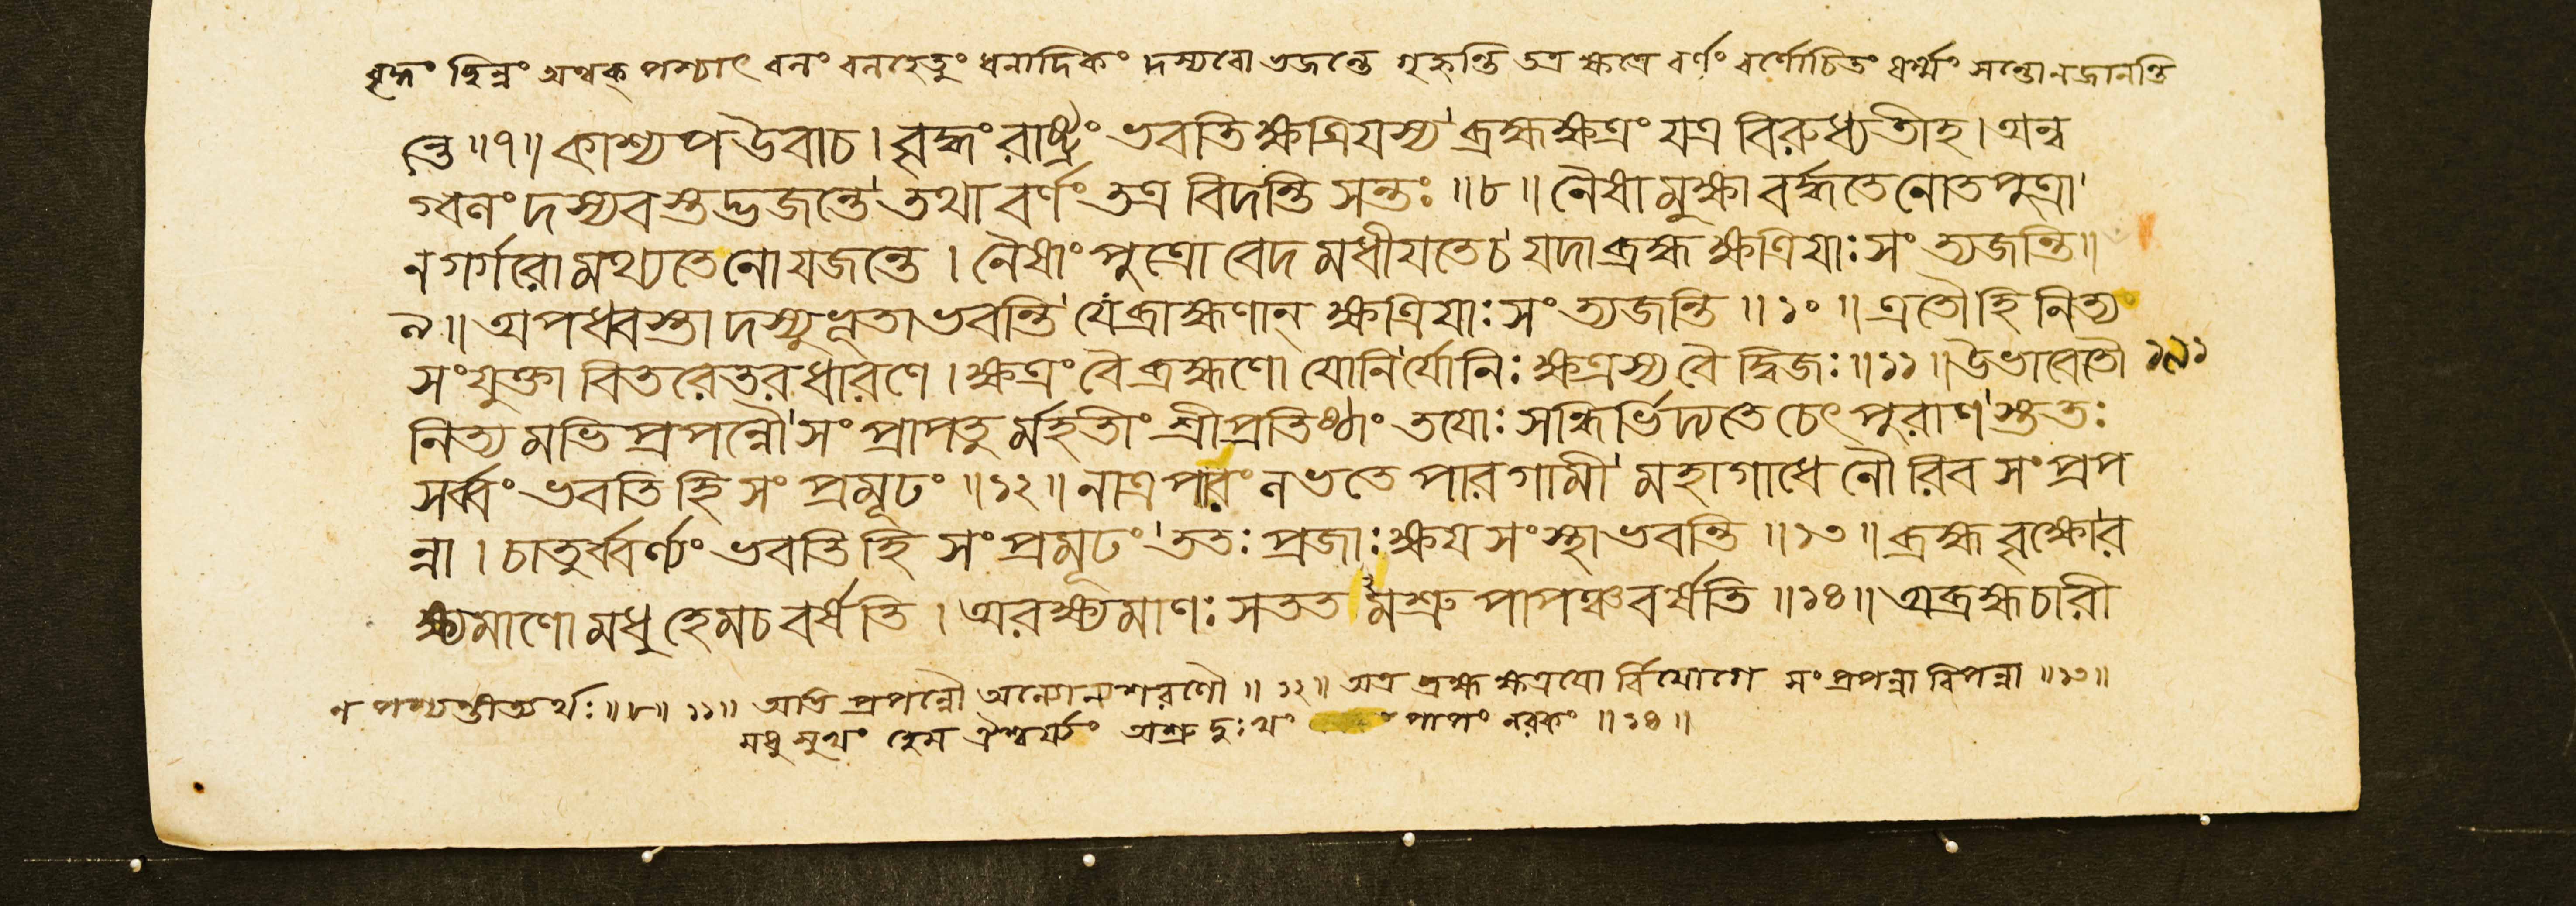 বৃহ্নং ছিন্নং অন্বক্ পশ্চাৎ বনং বনহেতুং ধনাদিকং দস্যবো ভজন্তে গৃহ্নন্তি তত্র ক্ষত্রে বর্ণং বর্ণোচিতং ধর্ম্মং সন্তো নজানন্তি
ন্তে ॥৭॥ কাশ্যপ উবাচ। বৃহ্নং রাষ্ট্রং ভবতি ক্ষত্রিযস্য ব্রহ্মক্ষত্রং যত্র বিরুধ্যতীহ। অন্ব
গ্বনং দস্যবস্তদ্ভজন্তে তথা বর্ণং তত্র বিদন্তি সন্তঃ ॥৮॥ নৈষামুক্ষা বর্দ্ধতে নোত পুত্রা
ন গর্গরো মথ্যতে নো যজন্তে। নৈষাং পুত্রো বেদমধীযতে চ যদা ব্রহ্ম ক্ষত্রিযাঃ সংত্যজন্তি॥
৯॥ অপধ্বস্তা দস্যুভূতা ভবন্তি যে ব্রাহ্মণান্ ক্ষত্রিযাঃ সংত্যজন্তি ॥১০॥ এতৌ হি নিত্যং
সংযুক্তা বিতরেতরধারণে। ক্ষত্রং বৈ ব্রহ্মণো যোনির্যোনিঃ ক্ষত্রস্য বৈ দ্বিজঃ ॥১১॥ উভাবেতৌ ১৯১
নিত্যমভিপ্রপন্নৌ সংপ্রাপতুর্মহতীং শ্রীপ্রতিষ্ঠাং তযোঃ সন্ধির্ভিদ্যতে চেৎ পুরাণস্ততঃ
সর্ব্বং ভবতি হি সংপ্রমূঢং ॥১২॥ নাত্র পারং লভতে পারগামী মহাগাধে নৌরিব সংপ্রপ
ন্না। চাতুর্ব্বর্ণ্যং ভবতি হি সংপ্রমূঢং ততঃ প্রজাঃ ক্ষযসংস্থা ভবন্তি ॥১৩॥ ব্রহ্মবৃক্ষো র
ক্ষ্যমাণো মধু হেম চ বর্ষতি। অরক্ষ্যমাণঃ সতত মশ্রু পাপঞ্চ বর্ষতি ॥১৪॥ অব্রহ্মচারী
ন পশ্যন্তীত্যর্থঃ ॥৮॥ ১১॥ অভি প্রপন্নৌ অন্যোন্যশরণৌ ॥১২॥ অত্র ব্রহ্ম ক্ষত্রযো র্বিযোগে সংপ্রপন্না বিপন্না ॥১৩॥
মধু সুখং হেম ঐশ্বর্য্যং অশ্রু দুঃখং পাপং নরকং ॥১৪॥